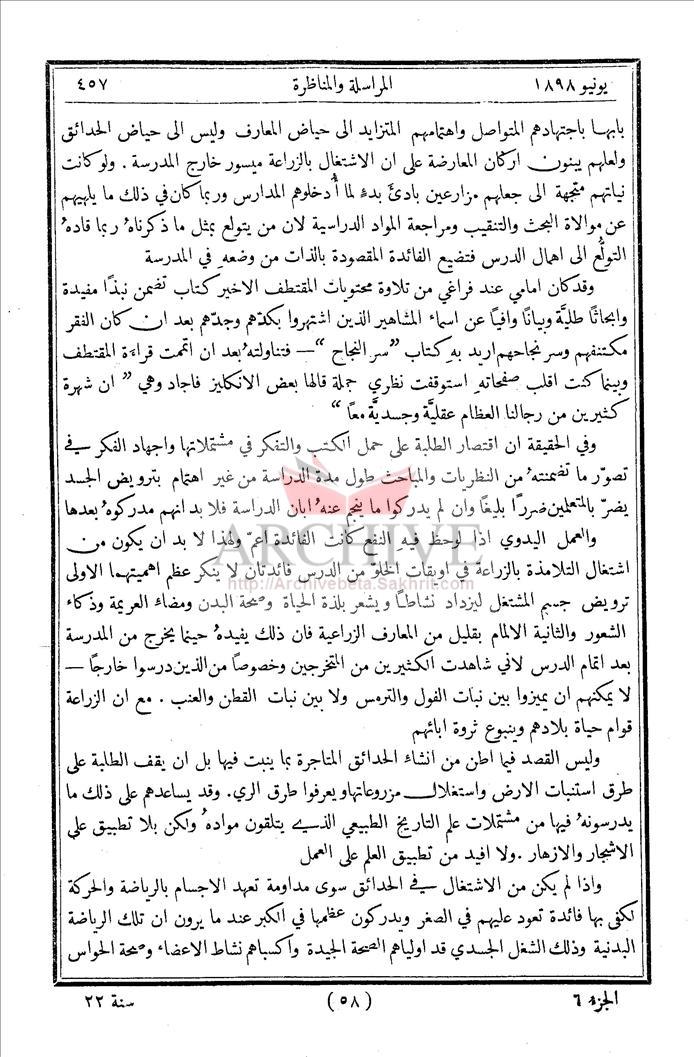 يونيو ١٨٩٨ المراسلة والمناظرة ٤٥٧
بابها باجتهادهم المتواصل واهتمامهم المتزايد الى حياض المعارف وليس الى حياض الحدائق
ولعلهم يبنون اركان المعارضة على ان الاشتغال بالزراعة ميسور خارج المدرسة . ولو كانت
نياتهم متجهة الى جعلهم مزارعين بادئَ بدءٍ لما أدخلوهم المدارس وربما كان في ذلك ما يلهيهم
عن موالاة البحث والتنقيب ومراجعة المواد الدراسية لان من يتولع بمثل ما ذكرناهُ ربما قادهُ
التولُّع الى اهمال الدرس فتضيع الفائدة المقصودة بالذات من وضعهِ في المدرسة
وقد كان امامي عند فراغي من تلاوة محتويات المقتطف الاخير كتاب تضمن نبذًا مفيدة
وابحاثًا طليَّة وبيانًا وافيًا عن اسماء المشاهير الذين اشتهروا بكدّهم وجدّهم بعد ان كان الفقر
مكتنفهم وسر نجاحهم اريد به كتاب ”سر النجاح “ — فتناولتهُ بعد ان اتممت قراءة المقتطف
وبينما كنت اقلب صفحاتهِ استوقفت نظري جملة قالها بعض الانكليز فاجاد وهي ” ان شهرة
كثيرين من رجالنا العظام عقليَّة وجسديَّة معًا “
وفي الحقيقة ان اقتصار الطلبة على حمل الكتب والتفكر في مشتملاتها واجهاد الفكر في
تصوّر ما تضمنتهُ من النظريات والمباحث طول مدة الدراسة من غير اهتمام بترويض الجسد
يضرّ بالمتعلمين ضررًا بليغًا وان لم يدركوا ما ينجم عنهُ ابان الدراسة فلا بد انهم مدركوهُ بعدها
ARCHIVE
والعمل اليدوي اذا لوحظ فيهِ النفع كانت الفائدة اعمّ ولهذا لا بد ان يكون من
اشتغال التلامذة بالزراعة في اويقات الخلو من الدرس فائدتان لا ينكر عظم اهميتهما الاولى
http://Archivebeta.Sakhrit.com
ترويض جسم المشتغل ليزداد نشاطًا ويشعر بلذة الحياة وصحة البدن ومضاء العزيمة وذكاء
الشعور والثانية الالمام بقليل من المعارف الزراعية فان ذلك يفيدهُ حينما يخرج من المدرسة
بعد اتمام الدرس لاني شاهدت الكثيرين من المتخرجين وخصوصاً من الذين درسوا خارجاً —
لا يمكنهم ان يميزوا بين نبات الفول والترمس ولا بين نبات القطن والعنب . مع ان الزراعة
قوام حياة بلادهم وينبوع ثروة ابائهم
وليس القصد فيما اظن من انشاء الحدائق المتاجرة بما ينبت فيها بل ان يقف الطلبة على
طرق استنبات الارض واستغلال مزروعاتها ويعرفوا طرق الري. وقد يساعدهم على ذلك ما
يدرسونهُ فيها من مشتملات علم التاريخ الطبيعي الذي يتلقون موادهُ ولكن بلا تطبيق على
الاشجار والازهار .ولا افيد من تطبيق العلم على العمل
واذا لم يكن من الاشتغال في الحدائق سوى مداومة تعهد الاجسام بالرياضة والحركة
لكفى بها فائدة تعود عليهم في الصغر ويدركون عظمها في الكبر عند ما يرون ان تلك الرياضة
البدنية وذلك الشغل الجسدي قد اولياهم الصحة الجيدة واكسباهم نشاط الاعضاء وصحة الحواس
الجزء ٦ (٥٨) سنة ٢٢